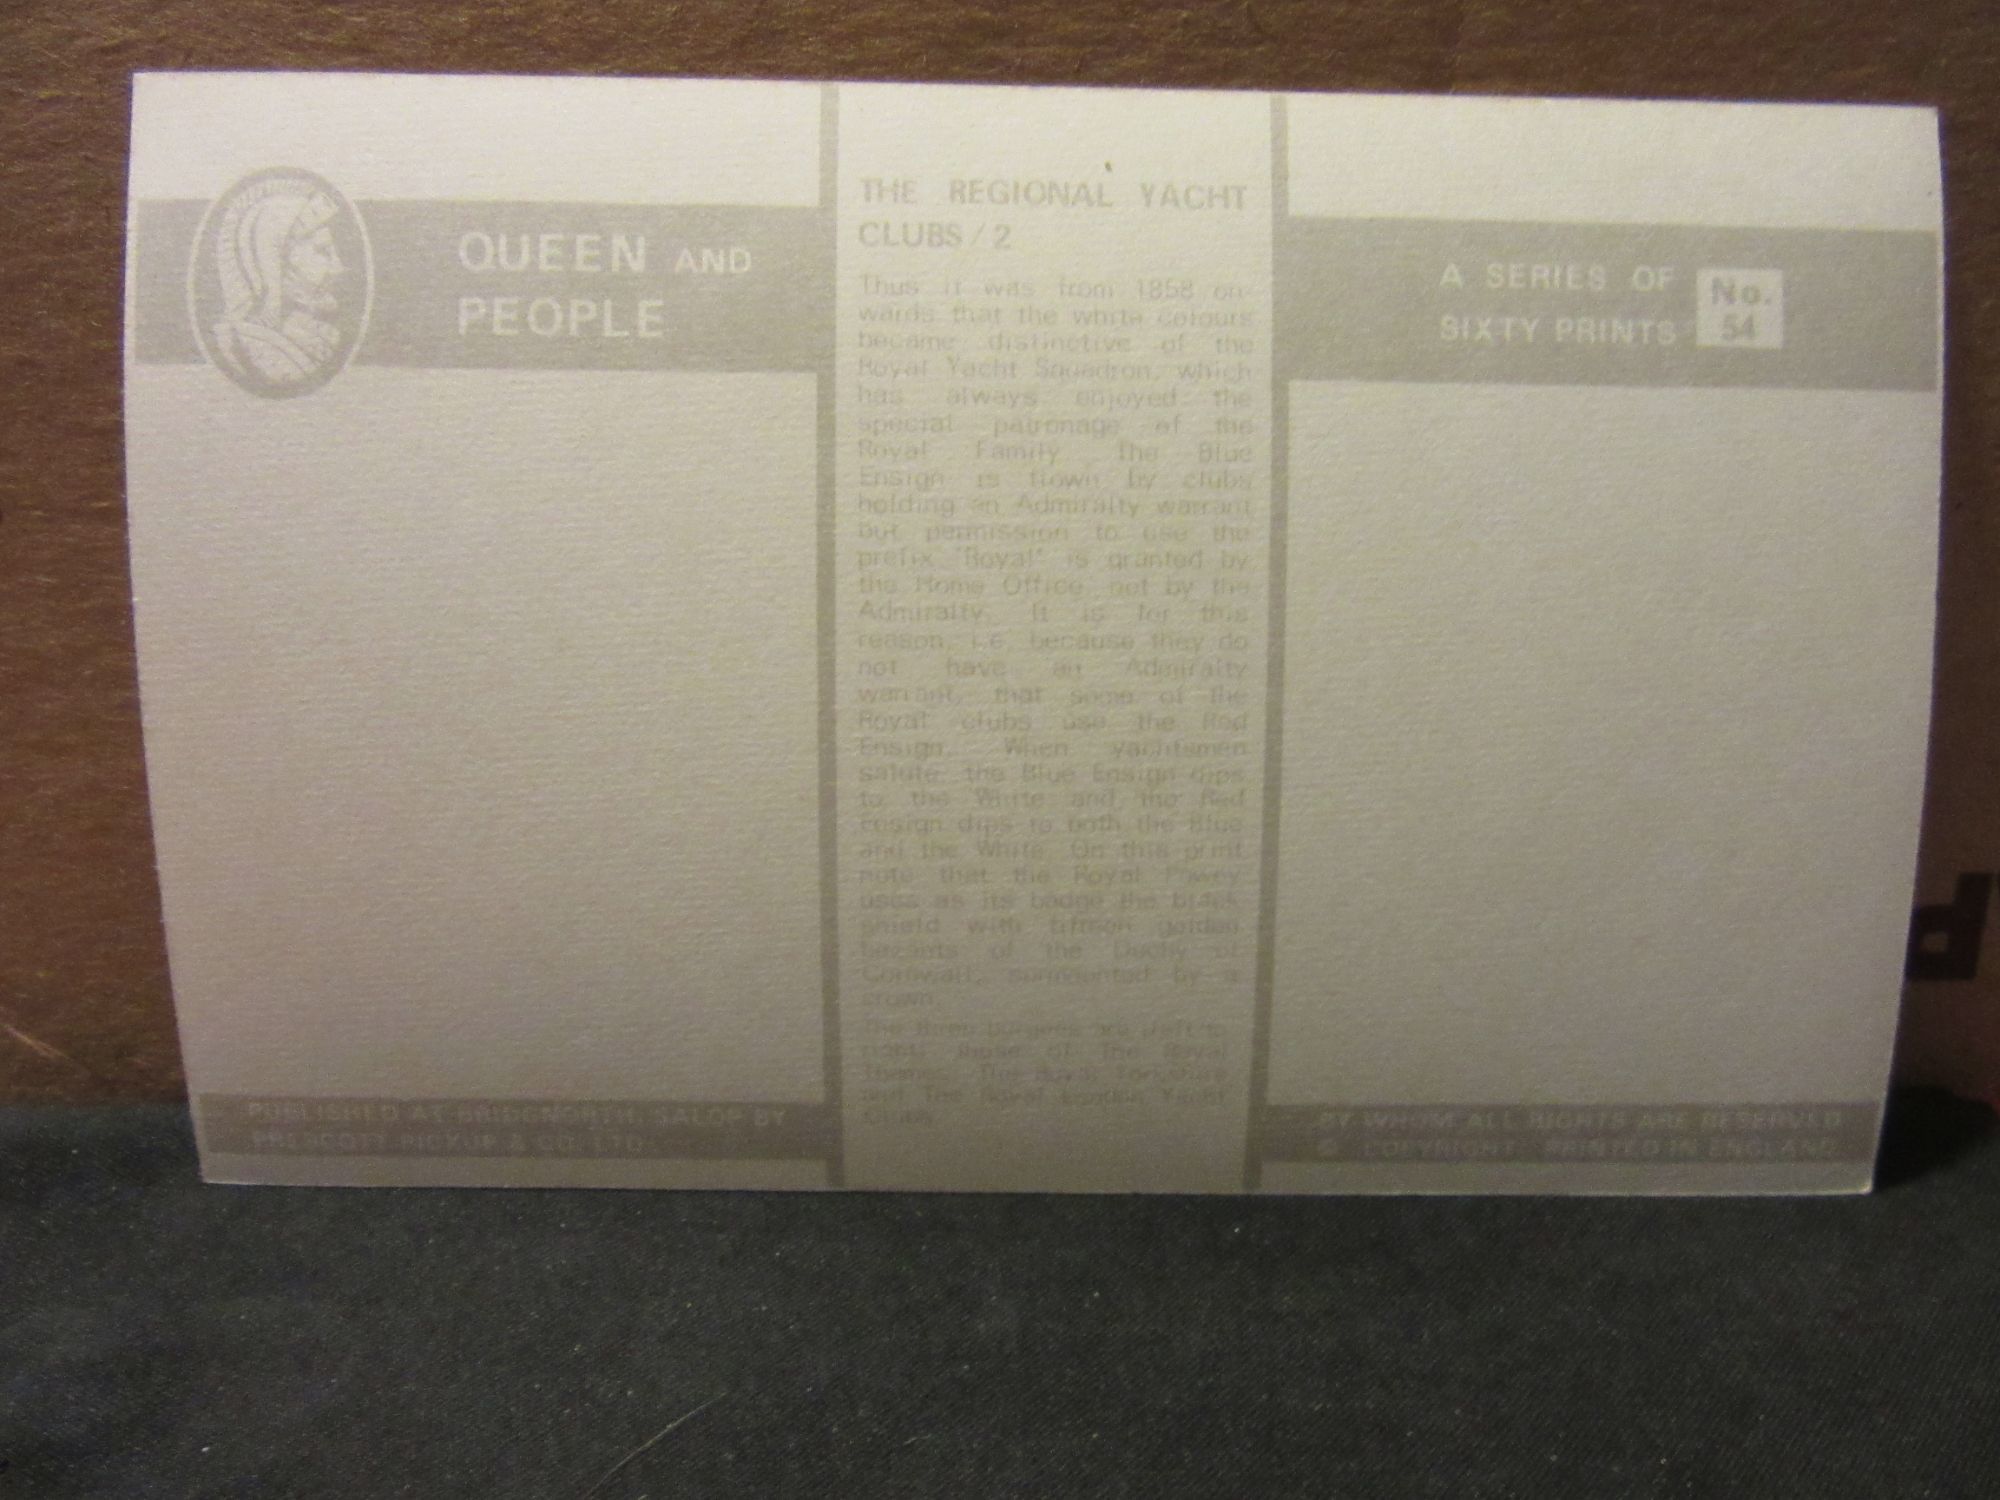 QUEEN AND
PEOPLE
THE REGIONAL YACHT
CLUBS / 2
Thus it was from 1858 on-
wards that the white colours
became distinctive of the
Royal Yacht Squadron, which
has always enjoyed the
special patronage of the
Royal Family. The Blue
Ensign is flown by clubs
holding an Admiralty warrant
but permission to use the
prefix 'Royal' is granted by
the Home Office, not by the
Admiralty. It is for this
reason, i.e. because they do
not have an Admiralty
warrant, that some of the
Royal clubs use the Red
Ensign. When yachtsmen
salute, the Blue Ensign dips
to the White and the Red
Ensign dips to both the Blue
and the White. On this print
note that the Royal Fowey
uses as its badge the black
shield with fifteen golden
bezants of the Duchy of
Cornwall, surmounted by a
crown.
The three burgees are (left to
right) those of The Royal
Thames, The Royal Yorkshire
and The Royal London Yacht
Clubs.
A SERIES OF
SIXTY PRINTS
No.
54
PUBLISHED AT BRIDGNORTH, SALOP BY
PRESCOTT PICKUP & CO. LTD.
BY WHOM ALL RIGHTS ARE RESERVED
© COPYRIGHT PRINTED IN ENGLAND